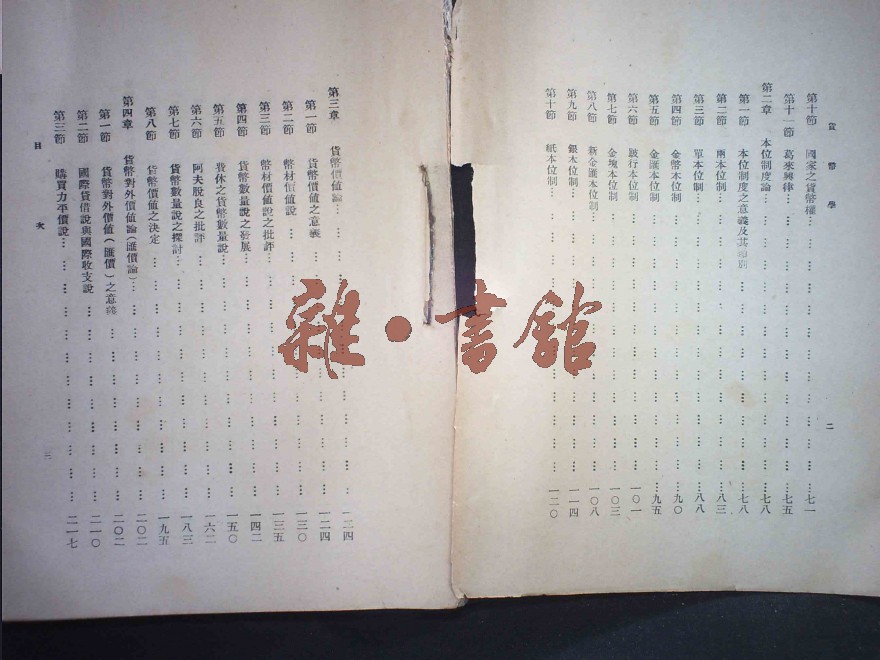 貨幣學
二
第十節 國家之貨幣權…七一
第十一節 葛來興律…七五
第二章 本位制度論…七八
第一節 本位制度之意義及其類別…七八
第二節 兩本位制…八三
第三節 單本位制…八八
第四節 金幣本位制…九〇
第五節 金匯本位制…九五
第六節 跛行本位制…一〇一
第七節 金塊本位制…一〇三
第八節 新金匯本位制…一〇八
第九節 銀本位制…一一四
第十節 紙本位制…一二〇
第三章 貨幣價値論…一二四
第一節 貨幣價値之意義…一二四
第二節 幣材價値說…一三〇
第三節 幣材價値說之批評…一三五
第四節 貨幣數量說之發展…一四二
第五節 費休之貨幣數量說…一五〇
第六節 阿夫脫良之批評…一六二
第七節 貨幣數量說之探討…一八三
第八節 貨幣價値之決定…一九五
第四章 貨幣對外價値論(匯價論)…二〇二
第一節 貨幣對外價値(匯價)之意義…二〇二
第二節 國際貸借說與國際收支說…二一〇
第三節 購買力平價說…二一七
目次
三
雜·書舘